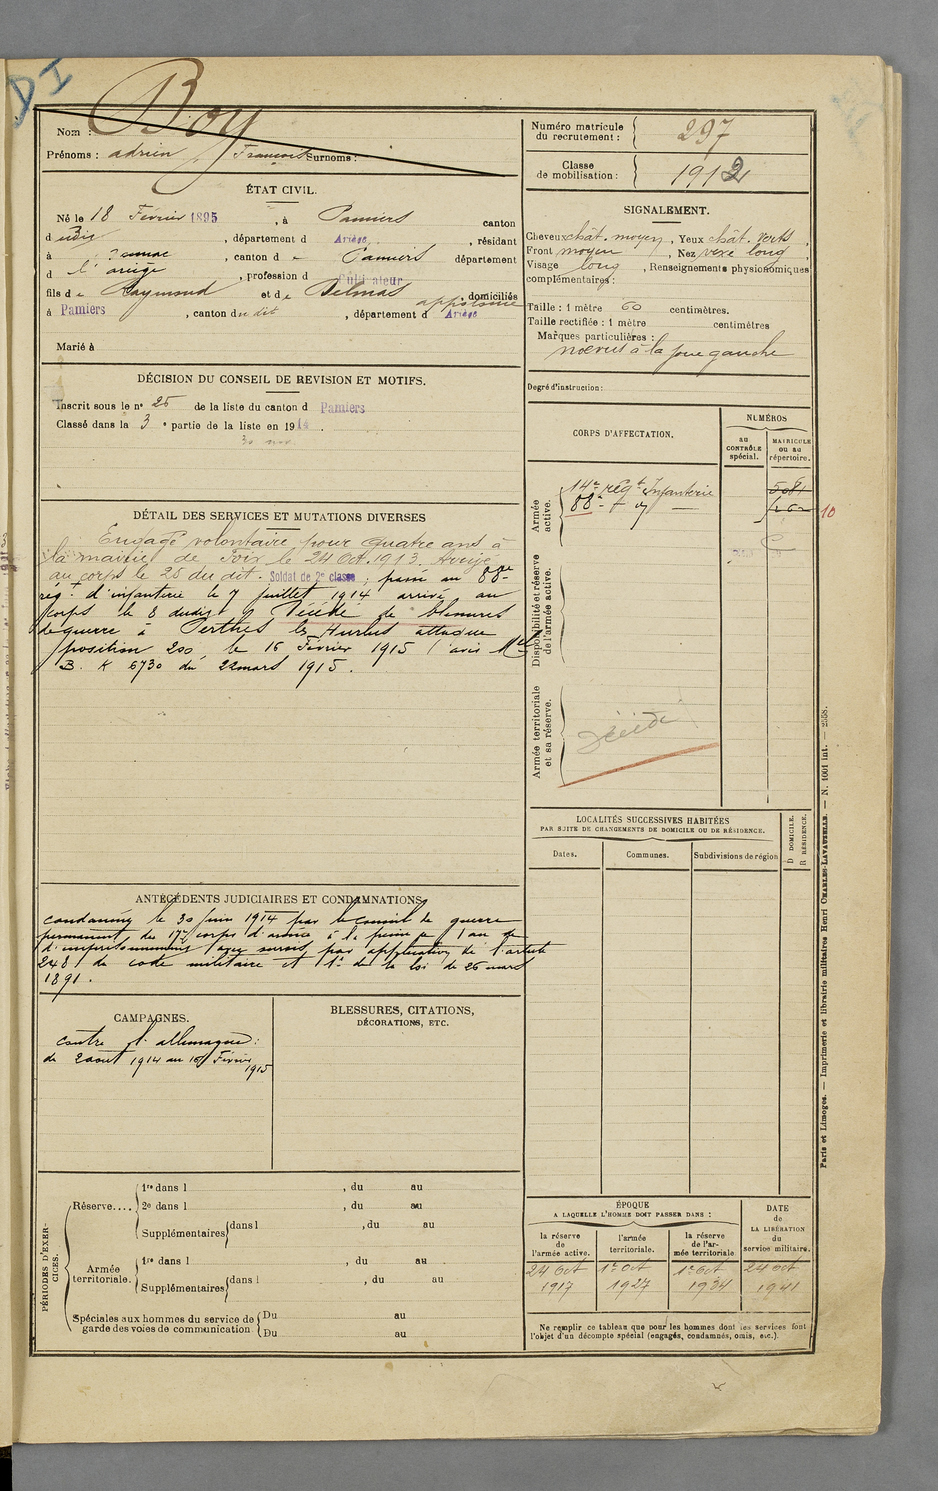 DI
Nom : Boy
Prénoms : adrien François Surnoms :
Numéro matricule du recrutement : 297
Classe de mobilisation : 1912
ÉTAT CIVIL.
Né le 18 Février 1895, à Pamiers canton
dudit, département d Ariège, résidant
à , canton de Pamiers département
d l'ariège, profession d Cultivateur
fils de Raymond et de Delmas appolonie domiciliés
à Pamiers, canton dudit, département d Ariège
Marié à
SIGNALEMENT.
Cheveux chât. moyen, Yeux chât. verts,
Front moyen, Nez vexe long,
Visage long, Renseignements physionomiques
complémentaires :
Taille : 1 mètre 60 centimètres.
Taille rectifiée : 1 mètre centimètres
Marques particulières :
nœvus à la joue gauche
Degré d'instruction :
DÉCISION DU CONSEIL DE REVISION ET MOTIFS.
Inscrit sous le n° 25 de la liste du canton d Pamiers
Classé dans la 3e partie de la liste en 1914.
CORPS D'AFFECTATION.
NUMÉROS
au CONTRÔLE spécial.
MATRICULE ou au répertoire.
Armée active.
14e régt Infanterie 5081
88e - d° -
10
Disponibilité et réserve de l'armée active.
Armée territoriale et sa réserve.
Décédé
DÉTAIL DES SERVICES ET MUTATIONS DIVERSES
Engagé volontaire pour quatre ans à
la mairie de Foix le 24 Oct. 1913. Arrivé
au corps le 25 du dit. Soldat de 2e classe; passé au 88e
rég. d'infanterie le 7 juillet 1914 arrivé au
corps le 8 dudit Décédé de blessures
de guerre à Perthes les Hurlus attaque
position 200, le 16 Février 1915 (avis Mel
B. K 6730 du 22 mars 1915.
LOCALITÉS SUCCESSIVES HABITÉES
PAR SUITE DE CHANGEMENTS DE DOMICILE OU DE RÉSIDENCE.
Dates.
Communes.
Subdivisions de région
D DOMICILE.
R RÉSIDENCE.
ANTÉCÉDENTS JUDICIAIRES ET CONDAMNATIONS
condamné le 30 juin 1914 par le conseil de guerre
permanent du 17e corps d'armée à la peine de 1 an
d'emprisonnement avec sursis par application de l'article
248 du code militaire et 1er de la loi du 26 mars
1891.
CAMPAGNES.
contre l'allemagne :
du 2 aout 1914 au 16 Février
1915
BLESSURES, CITATIONS,
DÉCORATIONS, ETC.
PÉRIODES D'EXERCICES.
Réserve....
1re dans l , du au
2e dans l , du au
Supplémentaires dans l , du au
Armée territoriale.
1re dans l , du au
Supplémentaires dans l , du au
Spéciales aux hommes du service de garde des voies de communication
Du au
Du au
ÉPOQUE
A LAQUELLE L'HOMME DOIT PASSER DANS :
la réserve de l'armée active.
l'armée territoriale.
la réserve de l'armée territoriale
DATE de LA LIBÉRATION du service militaire.
24 Oct 1er Oct 1er Oct 24 oct
1917 1927 1934 1941
Ne remplir ce tableau que pour les hommes dont les services font
l'objet d'un décompte spécial (engagés, condamnés, omis, etc.).
Paris et Limoges. — Imprimerie et librairie militaires Henri CHARLES-LAVAUZELLE. — N. 1601 int. — 2558.